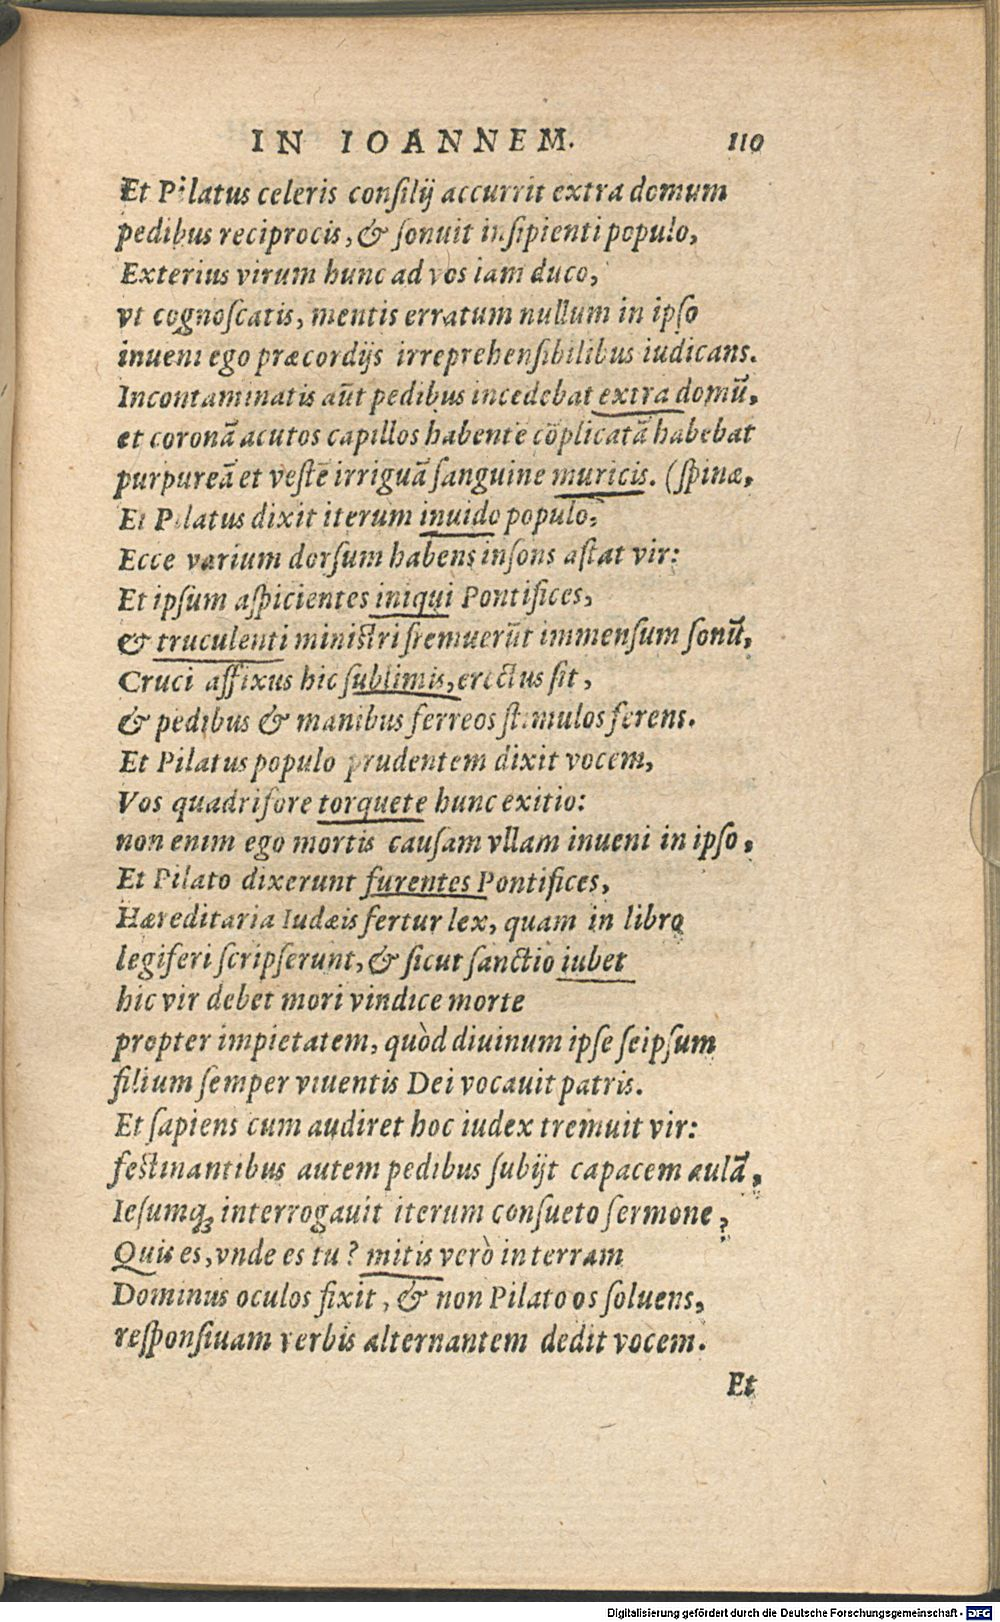 IN IOANNEM. 110
Et Pilatus celeris consilij accurrit extra domum
pedibus reciprocis, & sonuit insipienti populo,
Exterius virum hunc ad vos iam duco,
vt cognoscatis, mentis erratum nullum in ipso
inueni ego præcordijs irreprehensibilibus iudicans.
Incontaminatis aūt pedibus incedebat extra domū,
et coronā acutos capillos habentē cōplicatā habebat
purpureā et vestē irriguā sanguine muricis. (spinæ,
Et Pilatus dixit iterum inuido populo,
Ecce varium dorsum habens insons astat vir:
Et ipsum aspicientes iniqui Pontifices,
& truculenti ministri fremuerūt immensum sonū,
Cruci affixus hic sublimis, erectus sit,
& pedibus & manibus ferreos stimulos ferens.
Et Pilatus populo prudentem dixit vocem,
Vos quadrifore torquete hunc exitio:
non enim ego mortis causam vllam inueni in ipso,
Et Pilato dixerunt furentes Pontifices,
Hæreditaria Iudæis fertur lex, quam in libro
legiferi scripserunt, & sicut sanctio iubet
hic vir debet mori vindice morte
propter impietatem, quòd diuinum ipse seipsum
filium semper viuentis Dei vocauit patris.
Et sapiens cum audiret hoc iudex tremuit vir:
festinantibus autem pedibus subijt capacem aulā,
Iesumq; interrogauit iterum consueto sermone,
Quis es, vnde es tu? mitis verò in terram
Dominus oculos fixit, & non Pilato os soluens,
responsiuam verbis alternantem dedit vocem.
Et
Digitalisierung gefördert durch die Deutsche Forschungsgemeinschaft - DFG